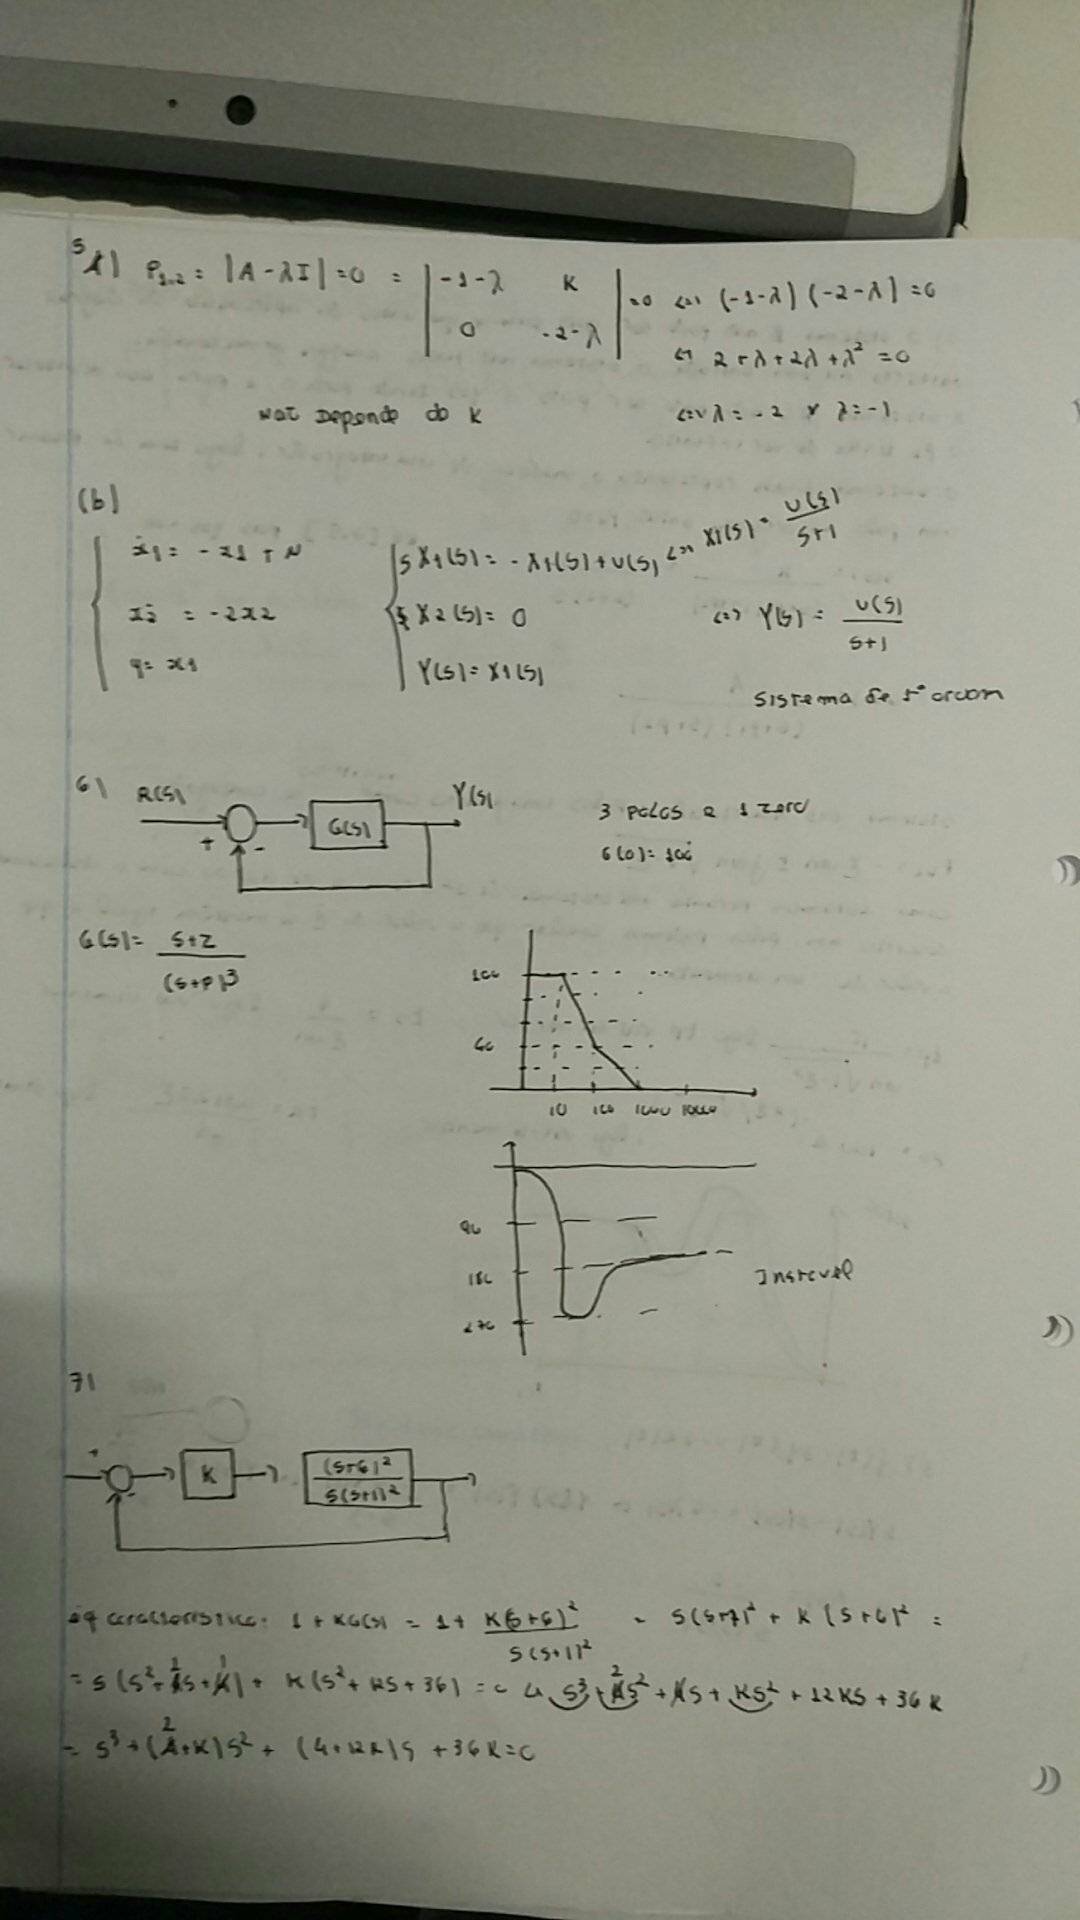 5 a) P1,2 = |A - λI| = 0 = | -1-λ K ; 0 -2-λ | = 0 <=> (-1-λ)(-2-λ) = 0
<=> 2 + λ + 2λ + λ² = 0
Nao Depende do K <=> λ = -2 v λ = -1
(b)
ẋ1 = -x1 + u
ẋ2 = -2x2
y = x1
s X1(s) = -X1(s) + U(s) <=> X1(s) = U(s)/(s+1)
s X2(s) = 0 <=> Y(s) = U(s)/(s+1)
Y(s) = X1(s)
sistema de 1º ordem
6) R(s) + - G(s) Y(s) 3 polos e 1 zero
G(0) = 100
G(s) = (s+z)/(s+p)³
100
60
10 100 1000 10000
90
180
270
Instavel
7)
+ - K (s+6)²/s(s+1)²
eq caracteristica: 1 + KG(s) = 1 + K(s+6)²/s(s+1)² = s(s+1)² + K(s+6)² =
= s(s² + 2s + 1) + K(s² + 12s + 36) = 0 <=> s³ + 2s² + s + Ks² + 12Ks + 36K
= s³ + (2+K)s² + (1+12K)s + 36K = 0